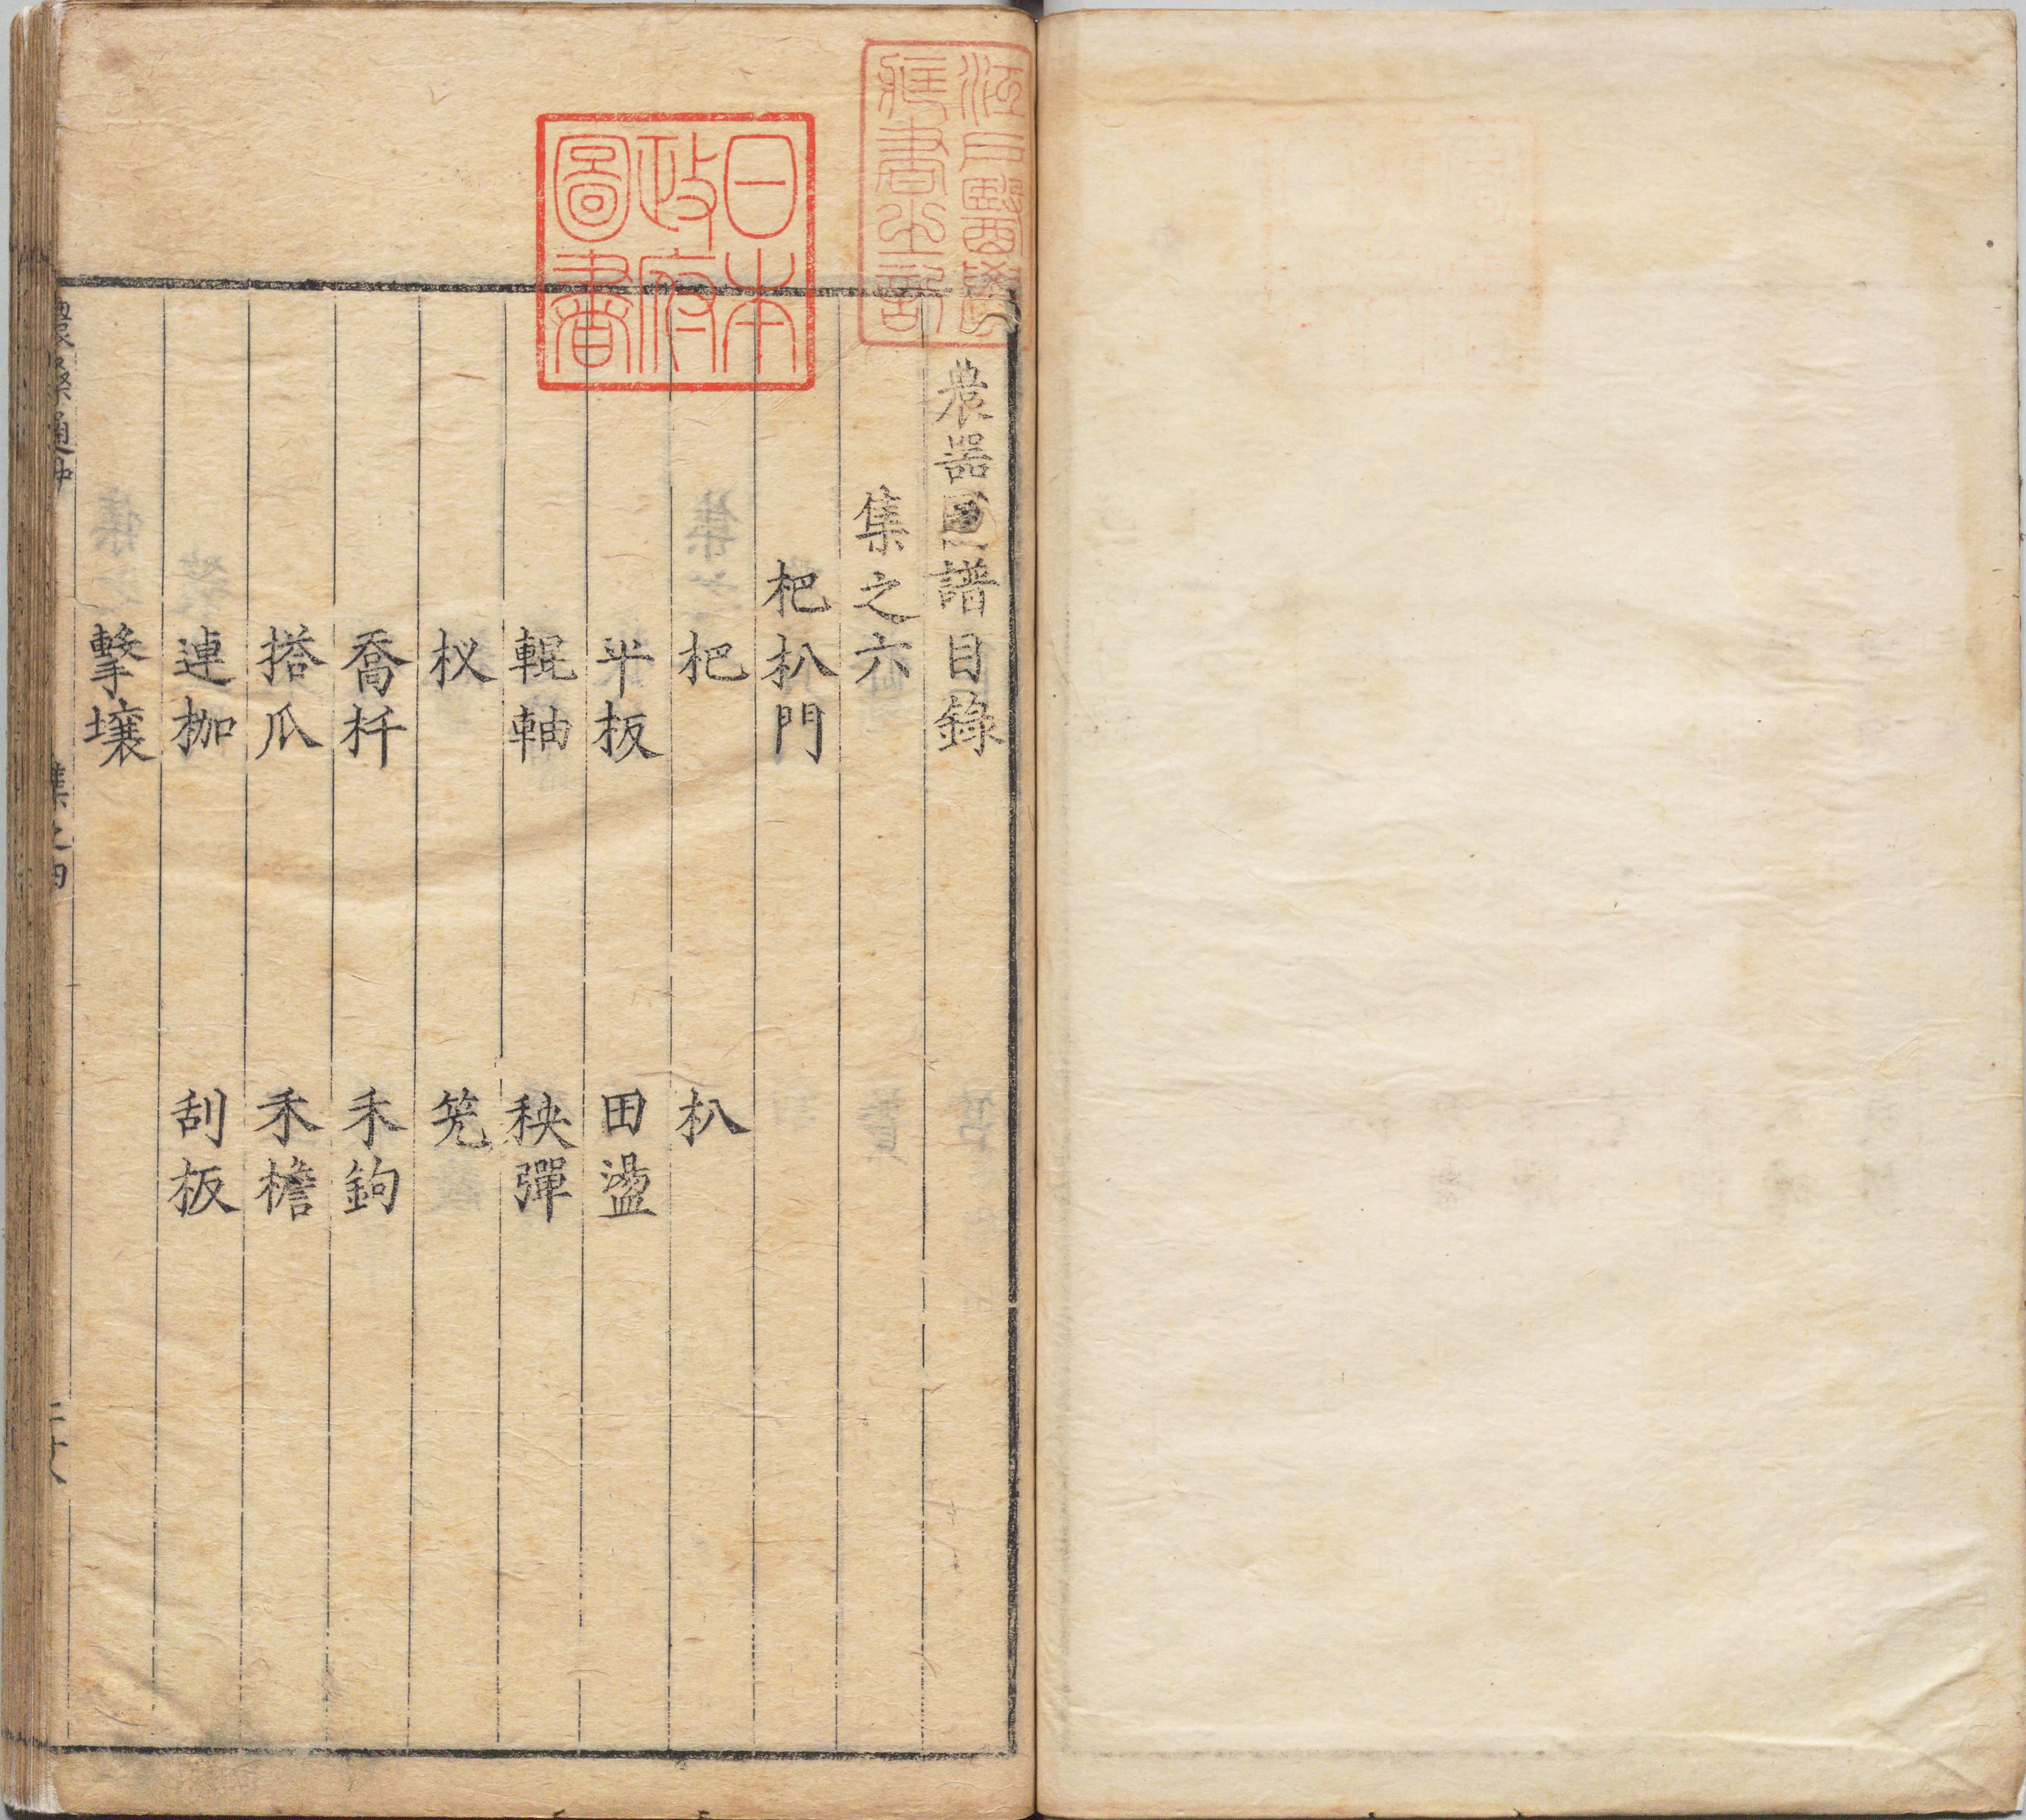 農器圖譜目錄
集之六
杷朳門
杷 朳
平板 田盪
輥軸 秧彈
杈 筅
喬扦 禾鉤
搭爪 禾檐
連枷 刮板
擊壤
集之四
日本
政府
圖書
江戶醫學
藏書之記